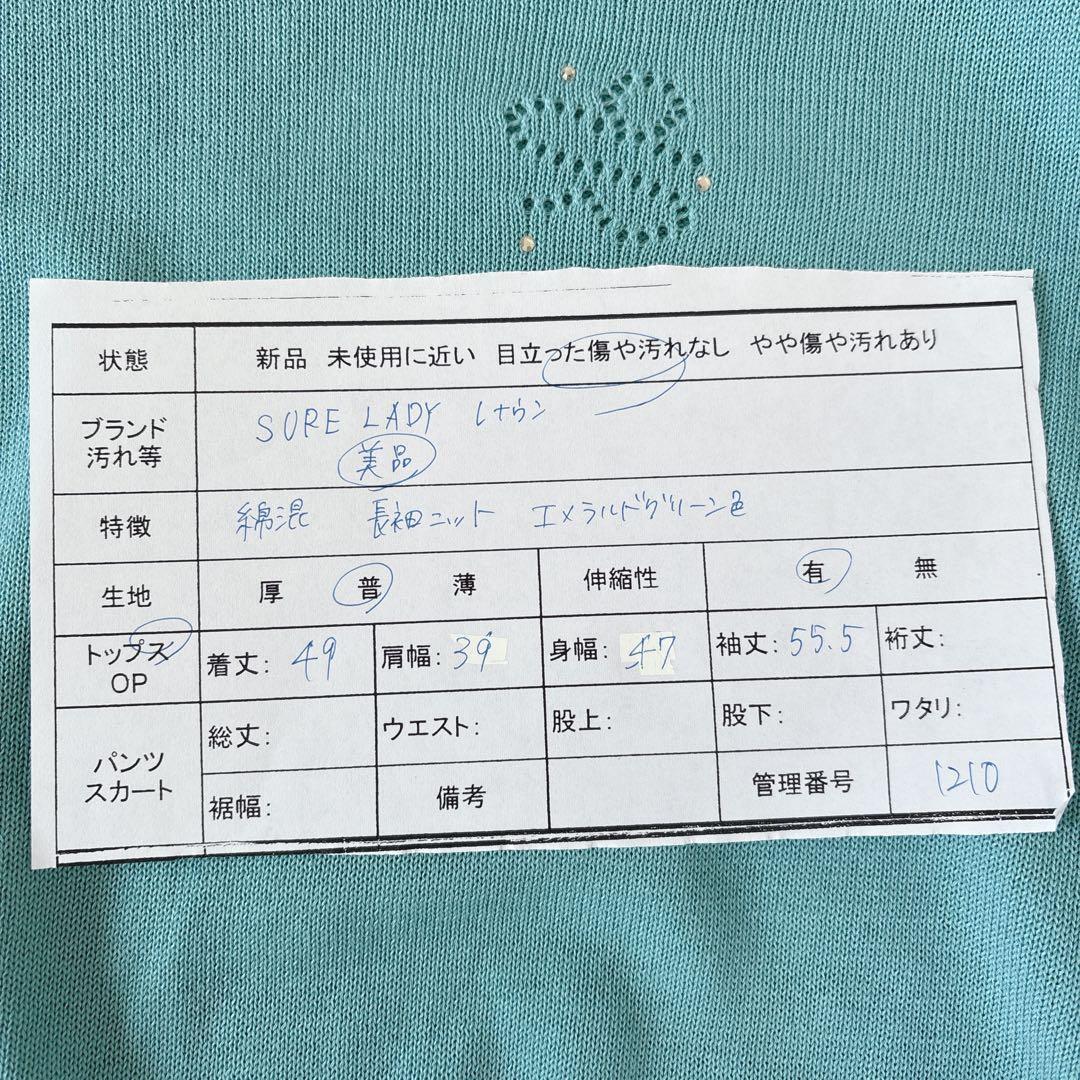 状態 新品 未使用に近い 目立った傷や汚れなし やや傷や汚れあり
ブランド 汚れ等 SURE LADY レナウン
美品
特徴 綿混 長袖ニット エメラルドグリーン色
生地 厚 普 薄 伸縮性 有 無
トップス OP 着丈: 49 肩幅: 39 身幅: 47 袖丈: 55.5 裄丈:
パンツ スカート 総丈: ウエスト: 股上: 股下: ワタリ:
裾幅: 備考 管理番号 1210